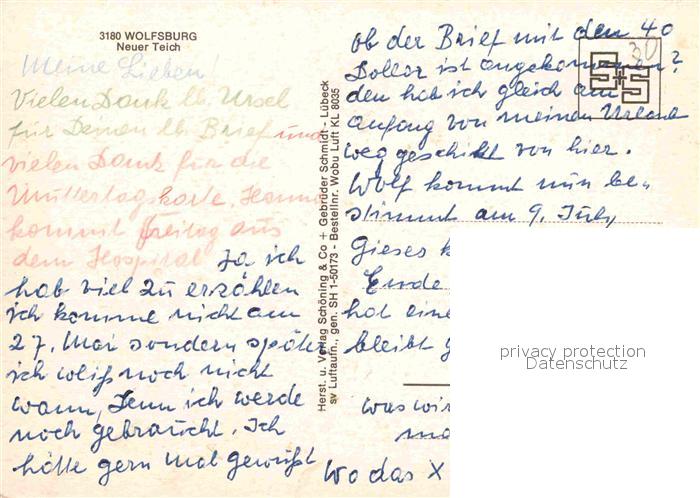 3180 WOLFSBURG
Neuer Teich
Meine Lieben!
Vielen Dank lb. Ursel
für Deinen lb. Brief und
vielen Dank für die
Muttertagskarte, Hanni
kommt Freitag aus
dem Hospital ja ich
hab viel zu erzählen
ich komme nicht am
27. Mai sondern später
ich weiß noch nicht
wann, denn ich werde
noch gebraucht. Ich
hätte gern mal gewußt
Herst. u. Verlag Schöning & Co + Gebrüder Schmidt - Lübeck
sv Luftaufn., gen. SH 1-50173 - Bestellnr. Wobu Luft KL 8035
ob der Brief mit den 40
Dollar ist angekommen?
den hab ich gleich am
anfang von meinen
weg geschikt von hier.
Wolf kommt nun be-
stimmt am 9. Juli,
dieses
Ende
hat eine
bleibt
was wir
Wo das X
30
privacy protection
Datenschutz